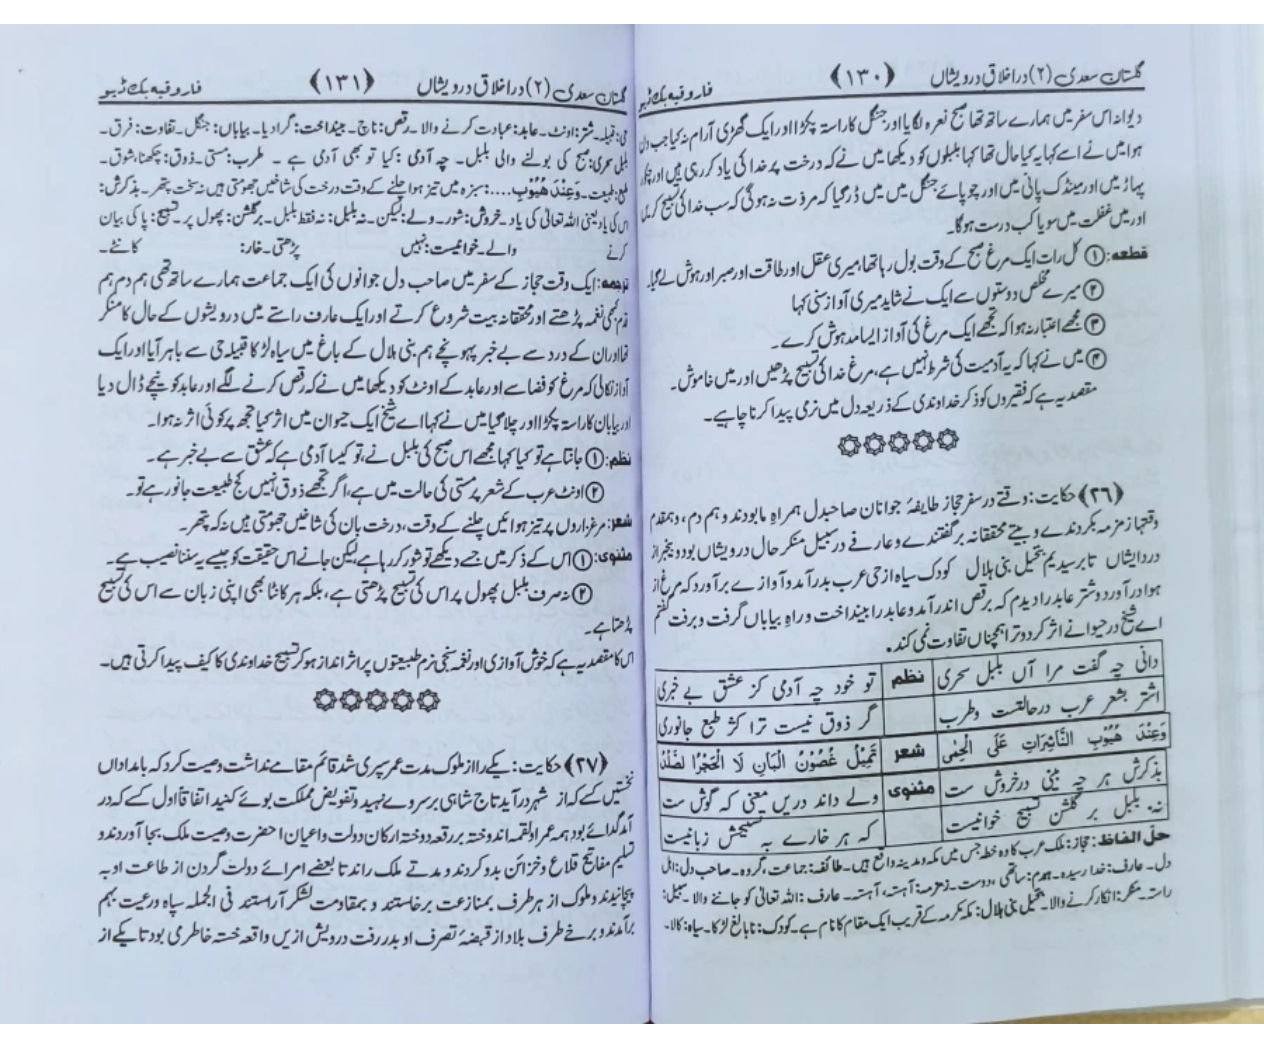 گلستان سعدی (۲) در اخلاق درویشاں ﴿۱۳۰﴾ فاروقیہ بک ڈپو
دیوانہ اس سفر میں ہمارے ساتھ تھا صبح نعرہ لگایا اور جنگل کا راستہ پکڑا اور ایک گھڑی آرام نہ کیا جب دن
ہوا میں نے اسے کہا یہ کیا حال تھا کہا بلبلوں کو دیکھا میں نے کہ درخت پر خدا کی یاد کر رہی ہیں اور چکور
پہاڑ میں اور مینڈک پانی میں اور چوپائے جنگل میں میں ڈر گیا کہ مروّت نہ ہوگی کہ سب خدا کی تسبیح کریں
اور میں غفلت میں سویا کب درست ہوگا۔
قطعہ: ① کل رات ایک مرغ صبح کے وقت بول رہا تھا، میری عقل اور طاقت اور صبر اور ہوش لے گیا۔
② میرے مخلص دوستوں سے ایک نے شاید میری آواز سنی کہا
③ مجھے اعتبار نہ ہوا کہ تجھے ایک مرغ کی آواز ایسا مدہوش کرے۔
④ میں نے کہا کہ یہ آدمیت کی شرط نہیں ہے، مرغ خدا کی تسبیح پڑھیں اور میں خاموش۔
مقصد یہ ہے کہ فقیروں کو ذکر خداوندی کے ذریعہ دل میں نرمی پیدا کرنا چاہیے۔
(۲۶) حکایت: وقتے در سفر حجاز طایفۂ جوانان صاحبدل ہمراہ ما بودند و ہم دم، و ہمقدم
وقتہا زمزمہ بکردندے و بیتے محققانہ برگفتندے و عارفے در سبیل منکر حال درویشاں بود و بیخبر از
درد ایشاں تا برسیدیم بنخیل بنی ہلال کودک سیاہ از حی عرب بدر آمد و آوازے برآورد کہ مرغ از
ہوا درآورد و شتر عابد را دیدم کہ برقص اندر آمد و عابد را بینداخت و راہِ بیاباں گرفت و برفت گفتم
اے شیخ در حیوانے اثر کرد و ترا ہمچناں تفاوت نمی کند۔
دانی چہ گفت مرا آں بلبل سحری نظم تو خود چہ آدمی کز عشق بے خبری
اشتر بشعر عرب در حالتست و طرب گر ذوق نیست ترا کژ طبع جانوری
وَعِنْدَ هُبُوْبِ النَّاشِرَاتِ عَلَى الْحِمٰى شعر تَمِيْلُ غُصُوْنُ الْبَانِ لَا الْحَجَرُ الصَّلْدُ
بذکرش ہر چہ بینی در خروش ست مثنوی ولے داند دریں معنی کہ گوش ست
نہ بلبل بر گلشن تسبیح خوانیست کہ ہر خارے بہ تسبیحش زبانیست
حلّ الفاظ: حجاز: ملک عرب کا وہ خطہ جس میں مکہ و مدینہ واقع ہیں۔ طائفہ: جماعت، گروہ۔ صاحب دل: اہل
دل۔ عارف: خدا رسیدہ۔ ہمدم: ساتھی، دوست۔ زمزمہ: آہستہ، آہستہ۔ عارف: اللہ تعالیٰ کو جاننے والا۔ سبیل:
راستہ۔ منکر: انکار کرنے والا۔ نخیل بنی ہلال: مکہ مکرمہ کے قریب ایک مقام کا نام ہے۔ کودک: نابالغ لڑکا۔ سیاہ: کالا۔
گلستان سعدی (۲) در اخلاق درویشاں ﴿۱۳۱﴾ فاروقیہ بک ڈپو
حی: قبیلہ۔ شتر: اونٹ۔ عابد: عبادت کرنے والا۔ رقص: ناچ۔ بینداخت: گرا دیا۔ بیاباں: جنگل۔ تفاوت: فرق۔
بلبل سحری: صبح کی بولنے والی بلبل۔ چہ آدمی: کیا تو بھی آدمی ہے۔ طرب: مستی۔ ذوق: چکھنا، شوق۔
طبع: طبیعت۔ وَعِنْدَ هُبُوْبِ....: سبزہ میں تیز ہوا چلنے کے وقت درخت کی شاخیں جھومتی ہیں نہ سخت پتھر۔ بذکرش:
اس کی یاد یعنی اللہ تعالیٰ کی یاد۔ خروش: شور۔ ولے: لیکن۔ نہ بلبل: نہ فقط بلبل۔ برگلشن: پھول پر۔ تسبیح: پاکی بیان
کرنے والے۔ خوانیست: نہیں پڑھتی۔ خار: کانٹے۔
ترجمہ: ایک وقت حجاز کے سفر میں صاحب دل جوانوں کی ایک جماعت ہمارے ساتھ تھی ہم دم ہم
قدم کبھی نغمہ پڑھتے اور محققانہ بیت شروع کرتے اور ایک عارف راستے میں درویشوں کے حال کا منکر
تھا اور ان کے درد سے بے خبر پہونچے ہم بنی ہلال کے باغ میں سیاہ لڑکا قبیلہ حی سے باہر آیا اور ایک
آواز نکالی کہ مرغ کو فضا سے اور عابد کے اونٹ کو دیکھا میں نے کہ رقص کرنے لگے اور عابد کو نیچے ڈال دیا
اور بیابان کا راستہ پکڑا اور چلا گیا میں نے کہا اے شیخ ایک حیوان میں اثر کیا تجھ پر کوئی اثر نہ ہوا۔
نظم: ① جانتا ہے تو کیا کہا مجھے اس صبح کی بلبل نے، تو کیسا آدمی ہے کہ عشق سے بے خبر ہے۔
② اونٹ عرب کے شعر پر مستی کی حالت میں ہے، اگر تجھے ذوق نہیں کج طبیعت جانور ہے تو۔
شعر: مرغزاروں پر تیز ہوائیں چلنے کے وقت، درخت بان کی شاخیں جھومتی ہیں نہ کہ پتھر۔
مثنوی: ① اس کے ذکر میں جسے دیکھے تو شور کر رہا ہے، لیکن جانے اس حقیقت کو جیسے یہ سننا نصیب ہے۔
② نہ صرف بلبل پھول پر اس کی تسبیح پڑھتی ہے، بلکہ ہر کانٹا بھی اپنی زبان سے اس کی تسبیح
پڑھتا ہے۔
اس کا مقصد یہ ہے کہ خوش آوازی اور نغمہ سنجی نرم طبیعتوں پر اثر انداز ہو کر تسبیح خداوندی کا کیف پیدا کرتی ہیں۔
(۲۷) حکایت: یکے را از ملوک مدت عمر سپری شد قائم مقامے نداشت وصیت کرد کہ بامداداں
نخستیں کسے کہ از شہر درآید تاج شاہی بر سر وے نہید و تفویض مملکت بوئے کنید اتفاقاً اول کسے کہ در
آمد گدائے بود ہمہ عمر او لقمہ اندوختہ بر رقعہ دوختہ ارکان دولت و اعیان احضرت وصیت ملک بجا آوردند و
تسلیم مفاتیح قلاع و خزائن بدو کردند و مدتے ملک راند تا بعضے امرائے دولت گردن از طاعت او بہ
پیچانیدند و ملوک از ہر طرف بمنازعت برخاستند و بمقاومت لشکر آراستند فی الجملہ سپاہ و رعیت بہم
برآمدند و برخے طرف بلاد از قبضۂ تصرف او بدر رفت درویش ازیں واقعہ خستہ خاطر می بود تا یکے از